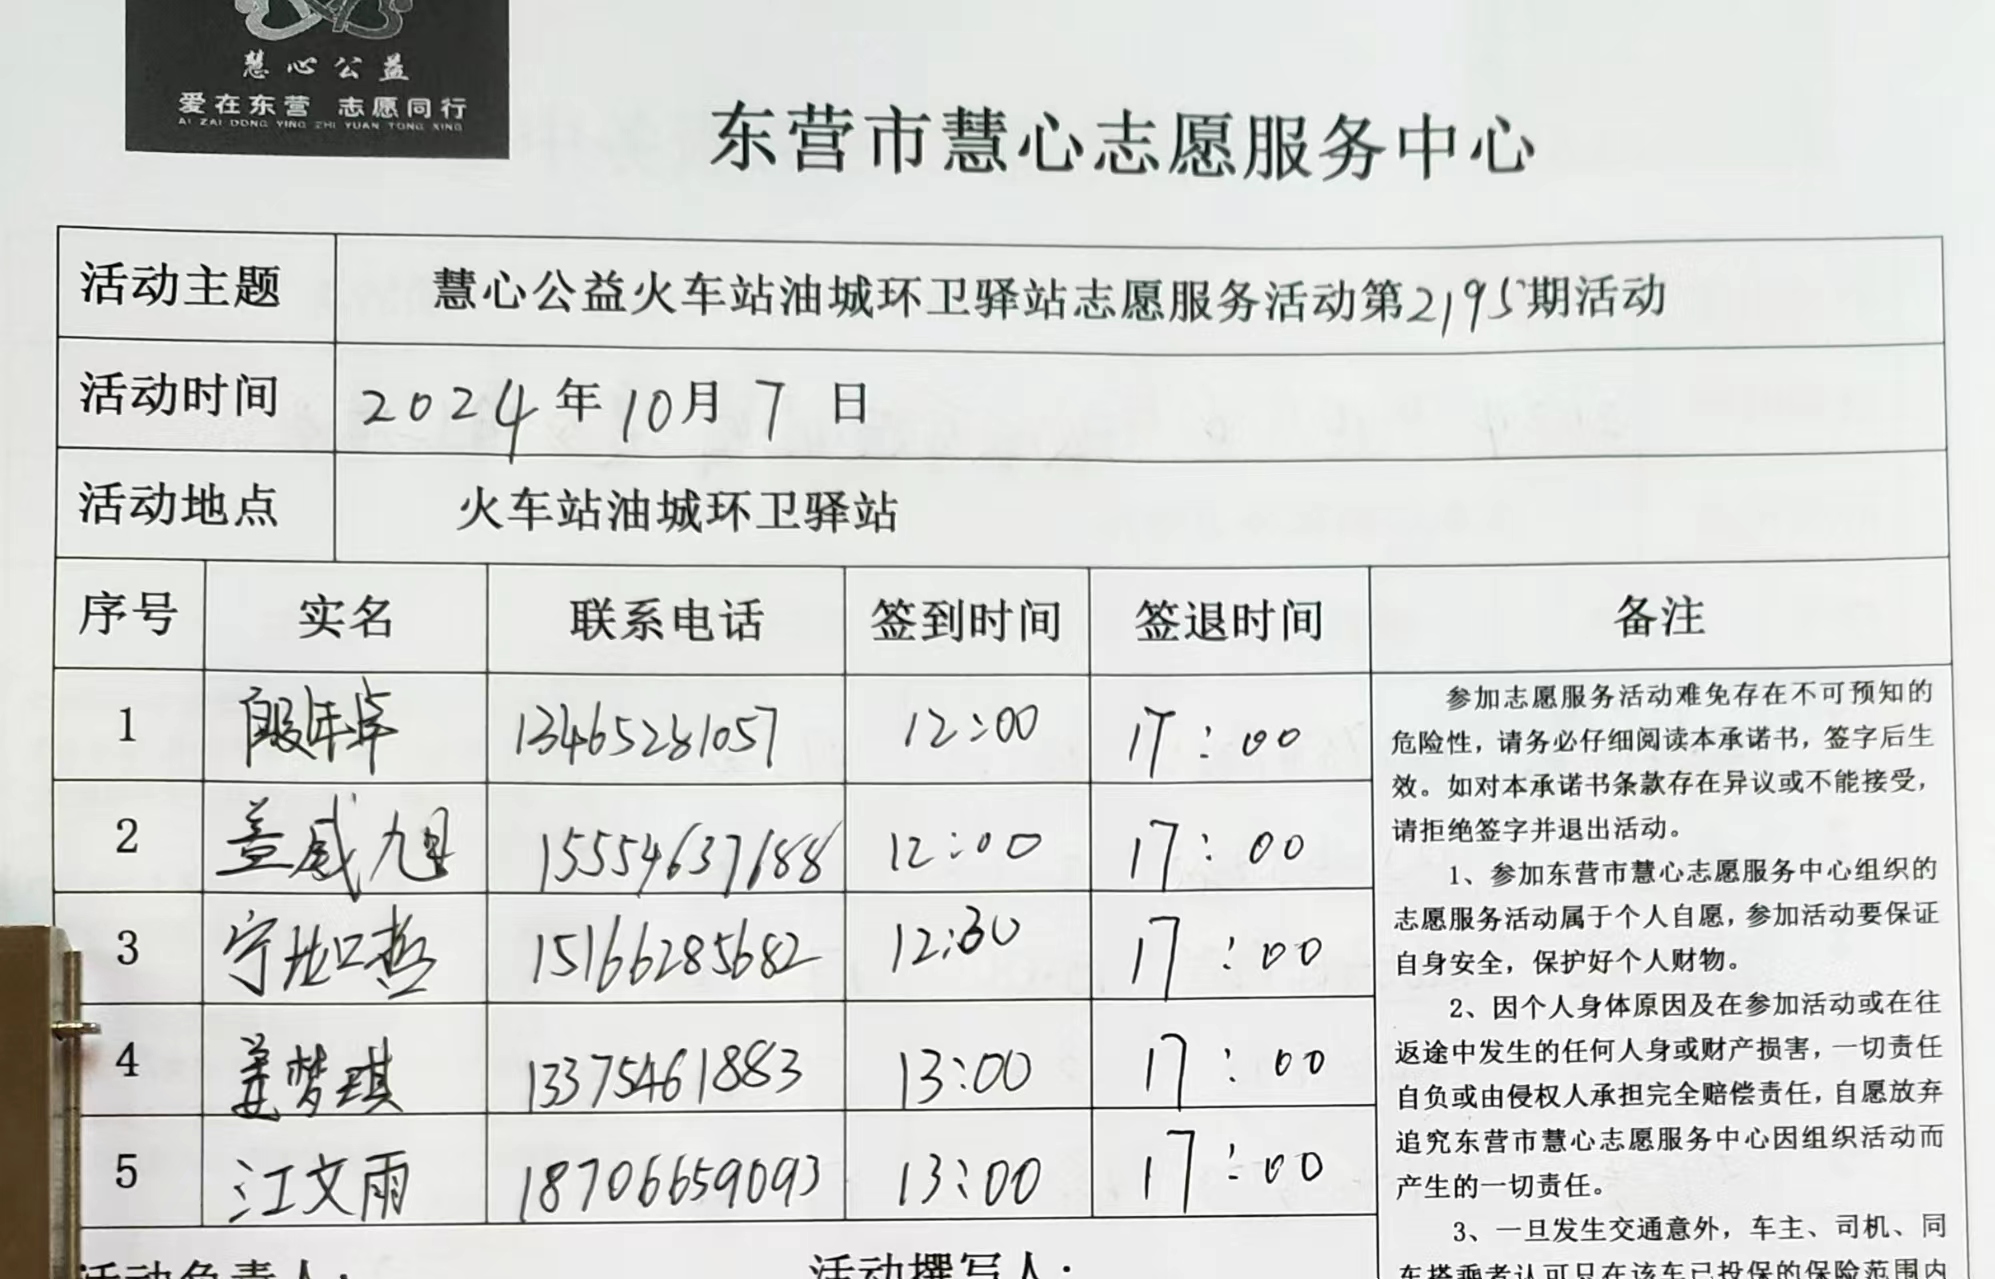 慧心公益
爱在东营 志愿同行
AI ZAI DONG YING ZHI YUAN TONG XING
东营市慧心志愿服务中心
活动主题 慧心公益火车站油城环卫驿站志愿服务活动第2195期活动
活动时间 2024年10月7日
活动地点 火车站油城环卫驿站
序号 实名 联系电话 签到时间 签退时间 备注
1 13465281057 12:00 17:00
2 盖威旭 15554637188 12:00 17:00
3 宁 哲 15166285682 12:30 17:00
4 姜梦琪 13375461883 13:00 17:00
5 江文雨 18706659093 13:00 17:00
参加志愿服务活动难免存在不可预知的
危险性，请务必仔细阅读本承诺书，签字后生
效。如对本承诺书条款存在异议或不能接受，
请拒绝签字并退出活动。
1、参加东营市慧心志愿服务中心组织的
志愿服务活动属于个人自愿，参加活动要保证
自身安全，保护好个人财物。
2、因个人身体原因及在参加活动或在往
返途中发生的任何人身或财产损害，一切责任
自负或由侵权人承担完全赔偿责任，自愿放弃
追究东营市慧心志愿服务中心因组织活动而
产生的一切责任。
3、一旦发生交通意外，车主、司机、同
车搭乘者认可只在该车已投保的保险范围内
活动负责人： 活动撰写人：